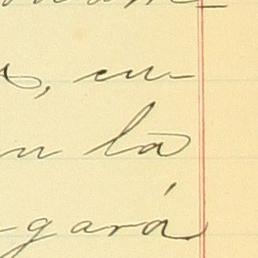 s, en
n la
gará